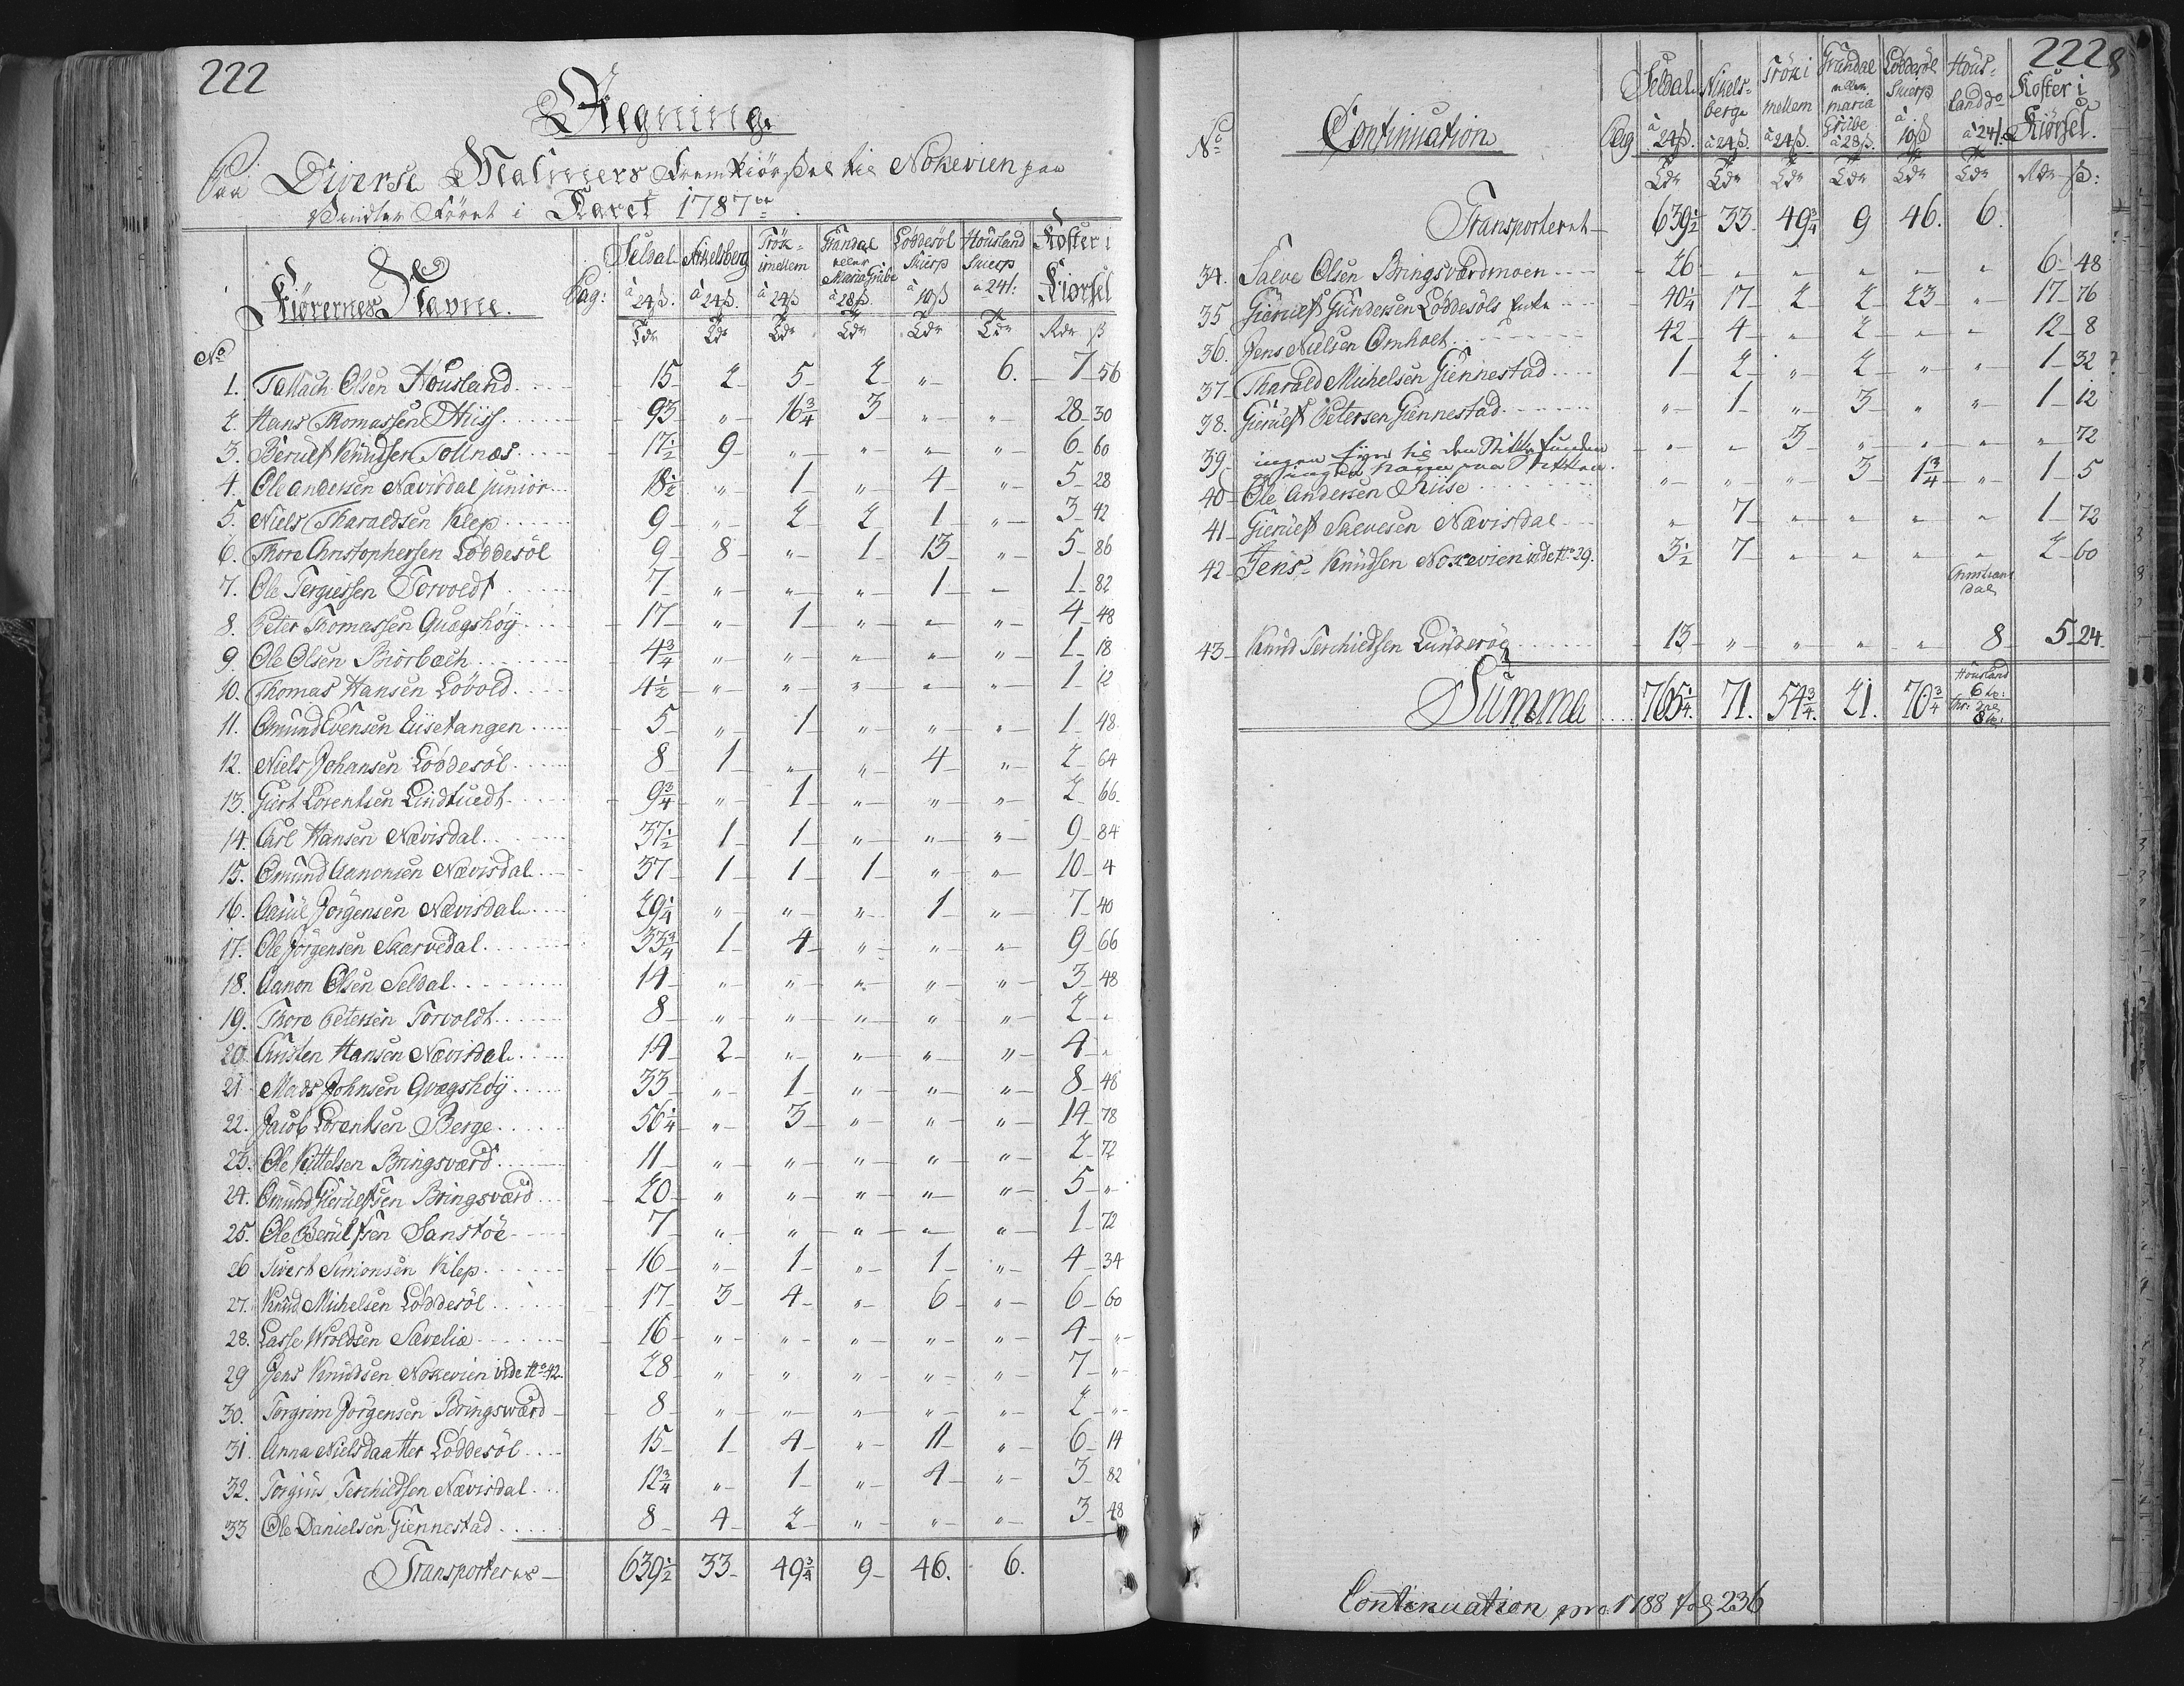 222
Regning
Paa Diverse Malmers Fremkiørsel til Nokevien paa
Vindter Føret i Karet 1787
Kiørernes Navne. Pag: Seldal à 24ß. Nikelsberg à 24ß. Trök- imellem à 24ß Grandal eller Maria Grube à 28ß. Löddesöl Skierp à 10ß Housland Skierp à 24ß: Koster i Kiørsel
No Tdr Tdr Tdr Tdr Tdr Tdr Rdr ß
1. Tallach Olsen Housland 15 2 5 2 " 6. 7 56
2. Hans Thomassen Riis 93 " 16 3/4 3 " " 28 30
3. Berulf Knudsen Tollnæs 17 1/2 9 " " " " 6 60
4. Ole Andersen Nævisdal junior 18 1/2 " 1 " 4 " 5 28
5. Niels Tharaldsen Klep 9 " 2 2 1 " 3 42
6. Thore Christophersen Löddesöl 9 8 " 1 13 " 5 86
7. Ole Tergiessen Torvoldt 7 " " " 1 " 1 82
8. Peter Thomassen Quægshöÿ 17 " 1 " " " 4 48
9. Ole Olsen Biorbæch 4 3/4 " " " " " 1 18
10. Thomas Hansen Lövold 4 1/2 " " " " " 1 12
11. Omund Evensen Eiisetangen 5 " 1 " " " 1 48
12. Niels Johansen Löddesöl 8 1 " " 4 " 2 64
13. Giert Lorentsen Lindtuedt 9 3/4 " 1 " " " 2 66
14. Carl Hansen Nævisdal 37 1/2 1 1 " " " 9 84
15. Omund Aanonsen Nævisdal 37 1 1 1 " " 10 4
16. Aasul Jörgensen Nævisdal 29 1/4 " " " 1 " 7 40
17. Ole Jörgensen Skarvedal 33 3/4 1 4 " " " 9 66
18. Aanon Olsen Seldal 14 " " " " " 3 48
19. Thore Petersen Torvoldt 8 " " " " " 2 "
20. Christen Hansen Nævisdal 14 2 " " " " 4 "
21. Mads Johnsen Qvægshöÿ 33 " 1 " " " 8 48
22. Jacob Lorentsen Berge 56 1/4 " 3 " " " 14 78
23. Ole Kittelsen Bringsværd 11 " " " " " 2 72
24. Omund Gierulfsen Bringsværd 20 " " " " " 5 "
25. Ole Berulfsen Sanstöe 7 " " " " " 1 72
26 Sivert Simonsen Klep 16 " 1 " 1 " 4 34
27. Knud Michelsen Löddesöl 17 3 4 " 6 " 6 60
28. Lasse Wroldsen Sævelia 16 " " " " " 4 "
29 Jens Knudsen Nokevien vide No 42. 28 " " " " " 7 "
30. Torgrim Jörgensen Bringsværd 8 " " " " " 2 "
31. Anna Nielsdaatter Löddesöl 15 1 4 " 11 " 6 14
32. Torgius Terchieldsen Nævisdal 12 3/4 " 1 " 4 " 3 82
33 Ole Danielsen Giennestad 8 4 2 " " " 3 48
Transporteres 639 1/2 33 49 3/4 9 46. 6.
222
No Continuation Pag Seldal à 24ß. Nikels- berge à 24ß. Trök i mellem à 24ß. Grandal eller maria Grube à 28ß. Löddesöl Skierp à 10ß Hous- land do à 24ß. Koster i Kiörsel.
Tdr Tdr Tdr Tdr Tdr Tdr Rdr ß:
Transporteret 639 1/2 33 49 3/4 9 46. 6.
34. Salve Olsen Bringsværdmoen 26 " " " " " 6 48
35 Gierulf Gundersen Löddesöls Enke 40 1/4 17 2 2 23 " 17 76
36. Jens Nielsen Omholt 42 4 " 2 " " 12 8
37 Tharald Michelsen Giennestad 1 2 " 2 " " 1 32
38. Gierulf Petersen Giennestad " 1 " 3 " " 1 12
39 ingen Eyer til den Stikke funden
og ingen Navn paa Stikken. " " 3 " " " " 72
40 Ole Andersen Riise " " " 3 1 3/4 " 1 5
41 Gierulf Salvesen Nævisdal " 7 " " " " 1 72
42 Jens Knudsen Nokevien vide No 29. 3 1/2 7 " " " " 2 60
Christians
dal
43 Knud Terchieldsen Lunderög 13 " " " " 8 5 24
Summa 765 1/4. 71. 54 3/4. 21. 70 3/4 Housland 6 to: Chr: dal 8 to:
Continuation pro 1788 fol 236